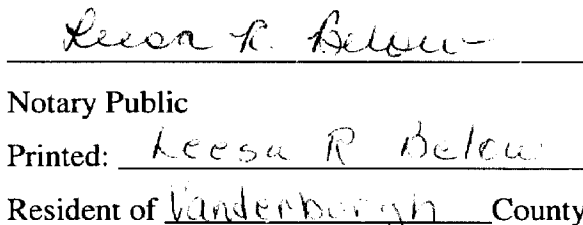 Leesa R. Below
Notary Public
Printed: Leesa R Below
Resident of Vanderburgh County